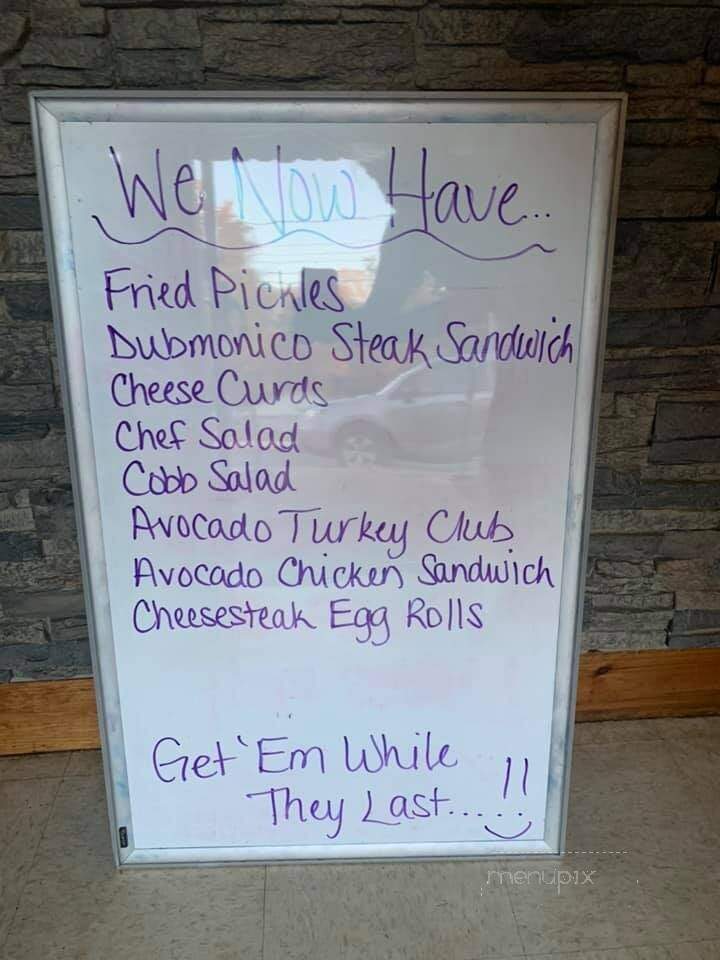 We Now Have...
Fried Pickles
Dubmonico Steak Sandwich
Cheese Curds
Chef Salad
Cobb Salad
Avocado Turkey Club
Avocado Chicken Sandwich
Cheesesteak Egg Rolls
Get 'Em While
They Last.....!!
menupix